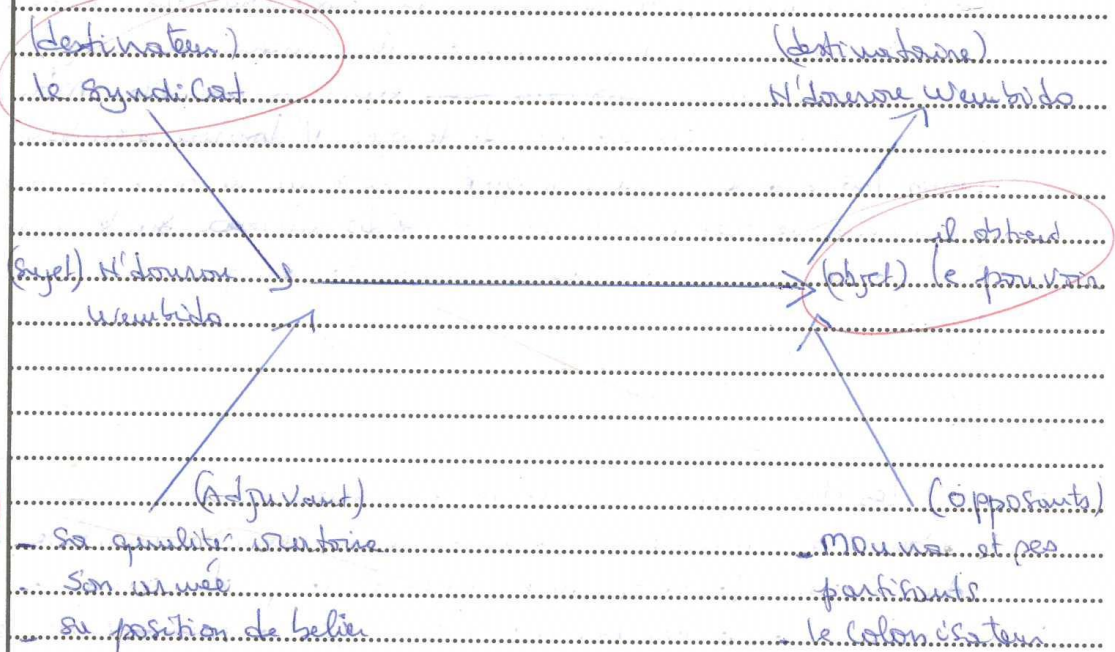 (destinateur)
le syndicat
(destinataire)
N'dourou Wembido
(Sujet) N'dourou
Wembido
il obtient
(objet) le pouvoir
(Adjuvant)
- Sa qualité oratoire
- Son armée
- sa position de belier
(opposants)
- Mouna et ses
partisants
- le colonisateur